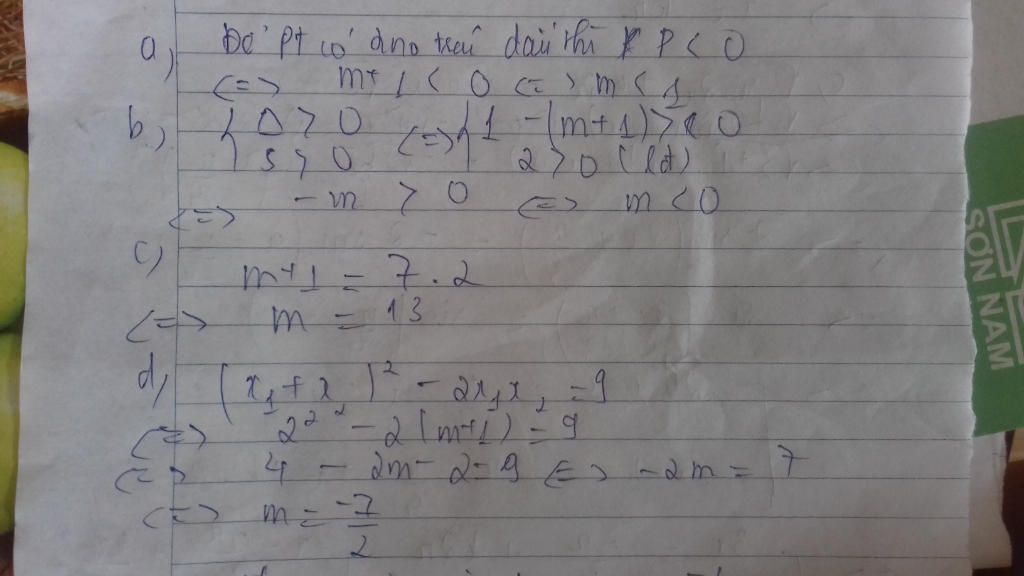 a) Để pt có 2 no trái dấu thì P < 0
<=> m+1 < 0 <=> m < 1
b) { Δ > 0 <=> { 1 - (m+1) > 0
{ S > 0 { 2 > 0 (lđ)
<=> -m > 0 <=> m < 0
c) m+1 = 7.2
<=> m = 13
d) (x₁ + x₂)² - 2x₁x₂ = 9
<=> 2² - 2(m+1) = 9
<=> 4 - 2m - 2 = 9 <=> -2m = 7
<=> m = -7/2
SƠN NAM